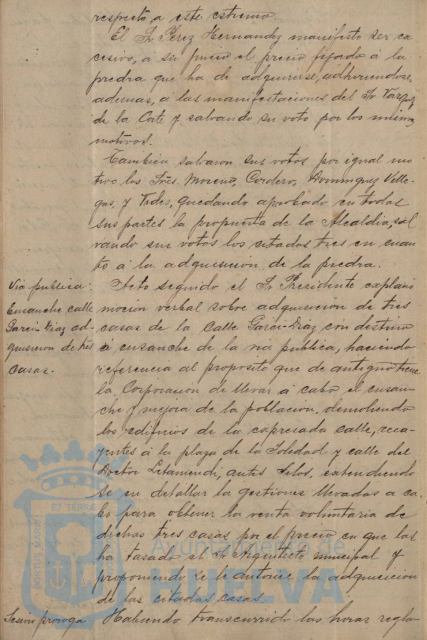 respecto, a este estremo.
El Sr Perez Hernandez manifesto ser ex
cesivo, a su juicio el precio fijado a la
piedra que ha de adquirirse, adhiriendose,
ademas, a las manifestaciones del Sr Vazquez
de la Corte y salvando su voto por los mismos
motivos.
Tambien salvaron sus votos por igual mo
tivo los Sres. Moreno, Cordero, Dominguez, Velle
gas, y Vides, quedando aprobado en todas
sus partes la propuesta de la Alcaldia, sal
vando sus votos los citados tres en cuan
to á la adquisicion de la piedra.
Via publica.
Ensanche calle
Garci-Diaz ad-
quisicion de tres
casas.
Acto seguido el Sr Presidente explanó
mocion verbal sobre adquisicion de tres
casas de la Calle Garci-Diaz con destino
á ensanche de la via publica, haciendo
referencia al proposito que de antiguo tiene
la Corporacion de llevar á cabo el ensan-
che y mejora de la poblacion, demoliendo
los edificios de la expresada calle, reca-
yentes á la plaza de la Soledad y calle del
Doctor Letamendi, antes Silos, extendiendo
se en detallar la gestiones llevadas a ca-
bo para obtener la venta voluntaria de
dichas tres casas por el precio en que las
ha tasado el Sr Arquitecto municipal y
proponiendo se le autorice la adquisicion
de las citadas casas.
Sesion proroga
Habiendo transcurrido las horas regla-
PORTUS MARIS ET TERRAE
Ayuntamiento de
HUELVA